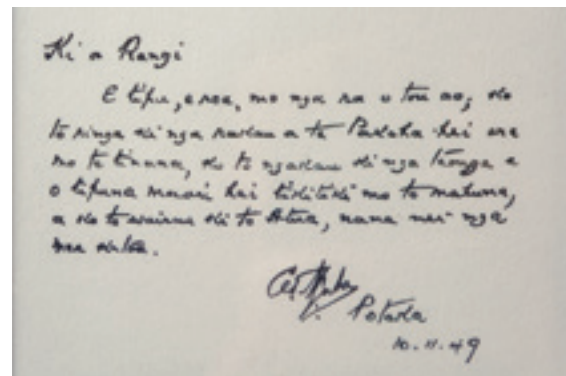 Ki a Rangi
E tipu, e rea, mo nga ra o tou ao; ko
to ringa ki nga rakau a te Pakeha hei ara
mo te tinana, ko to ngakau ki nga taonga a
o tipuna maori hei tikitiki mo to mahuna,
a ko to wairua ki to Atua, nana nei nga
mea katoa.
Potaka
10.11.49